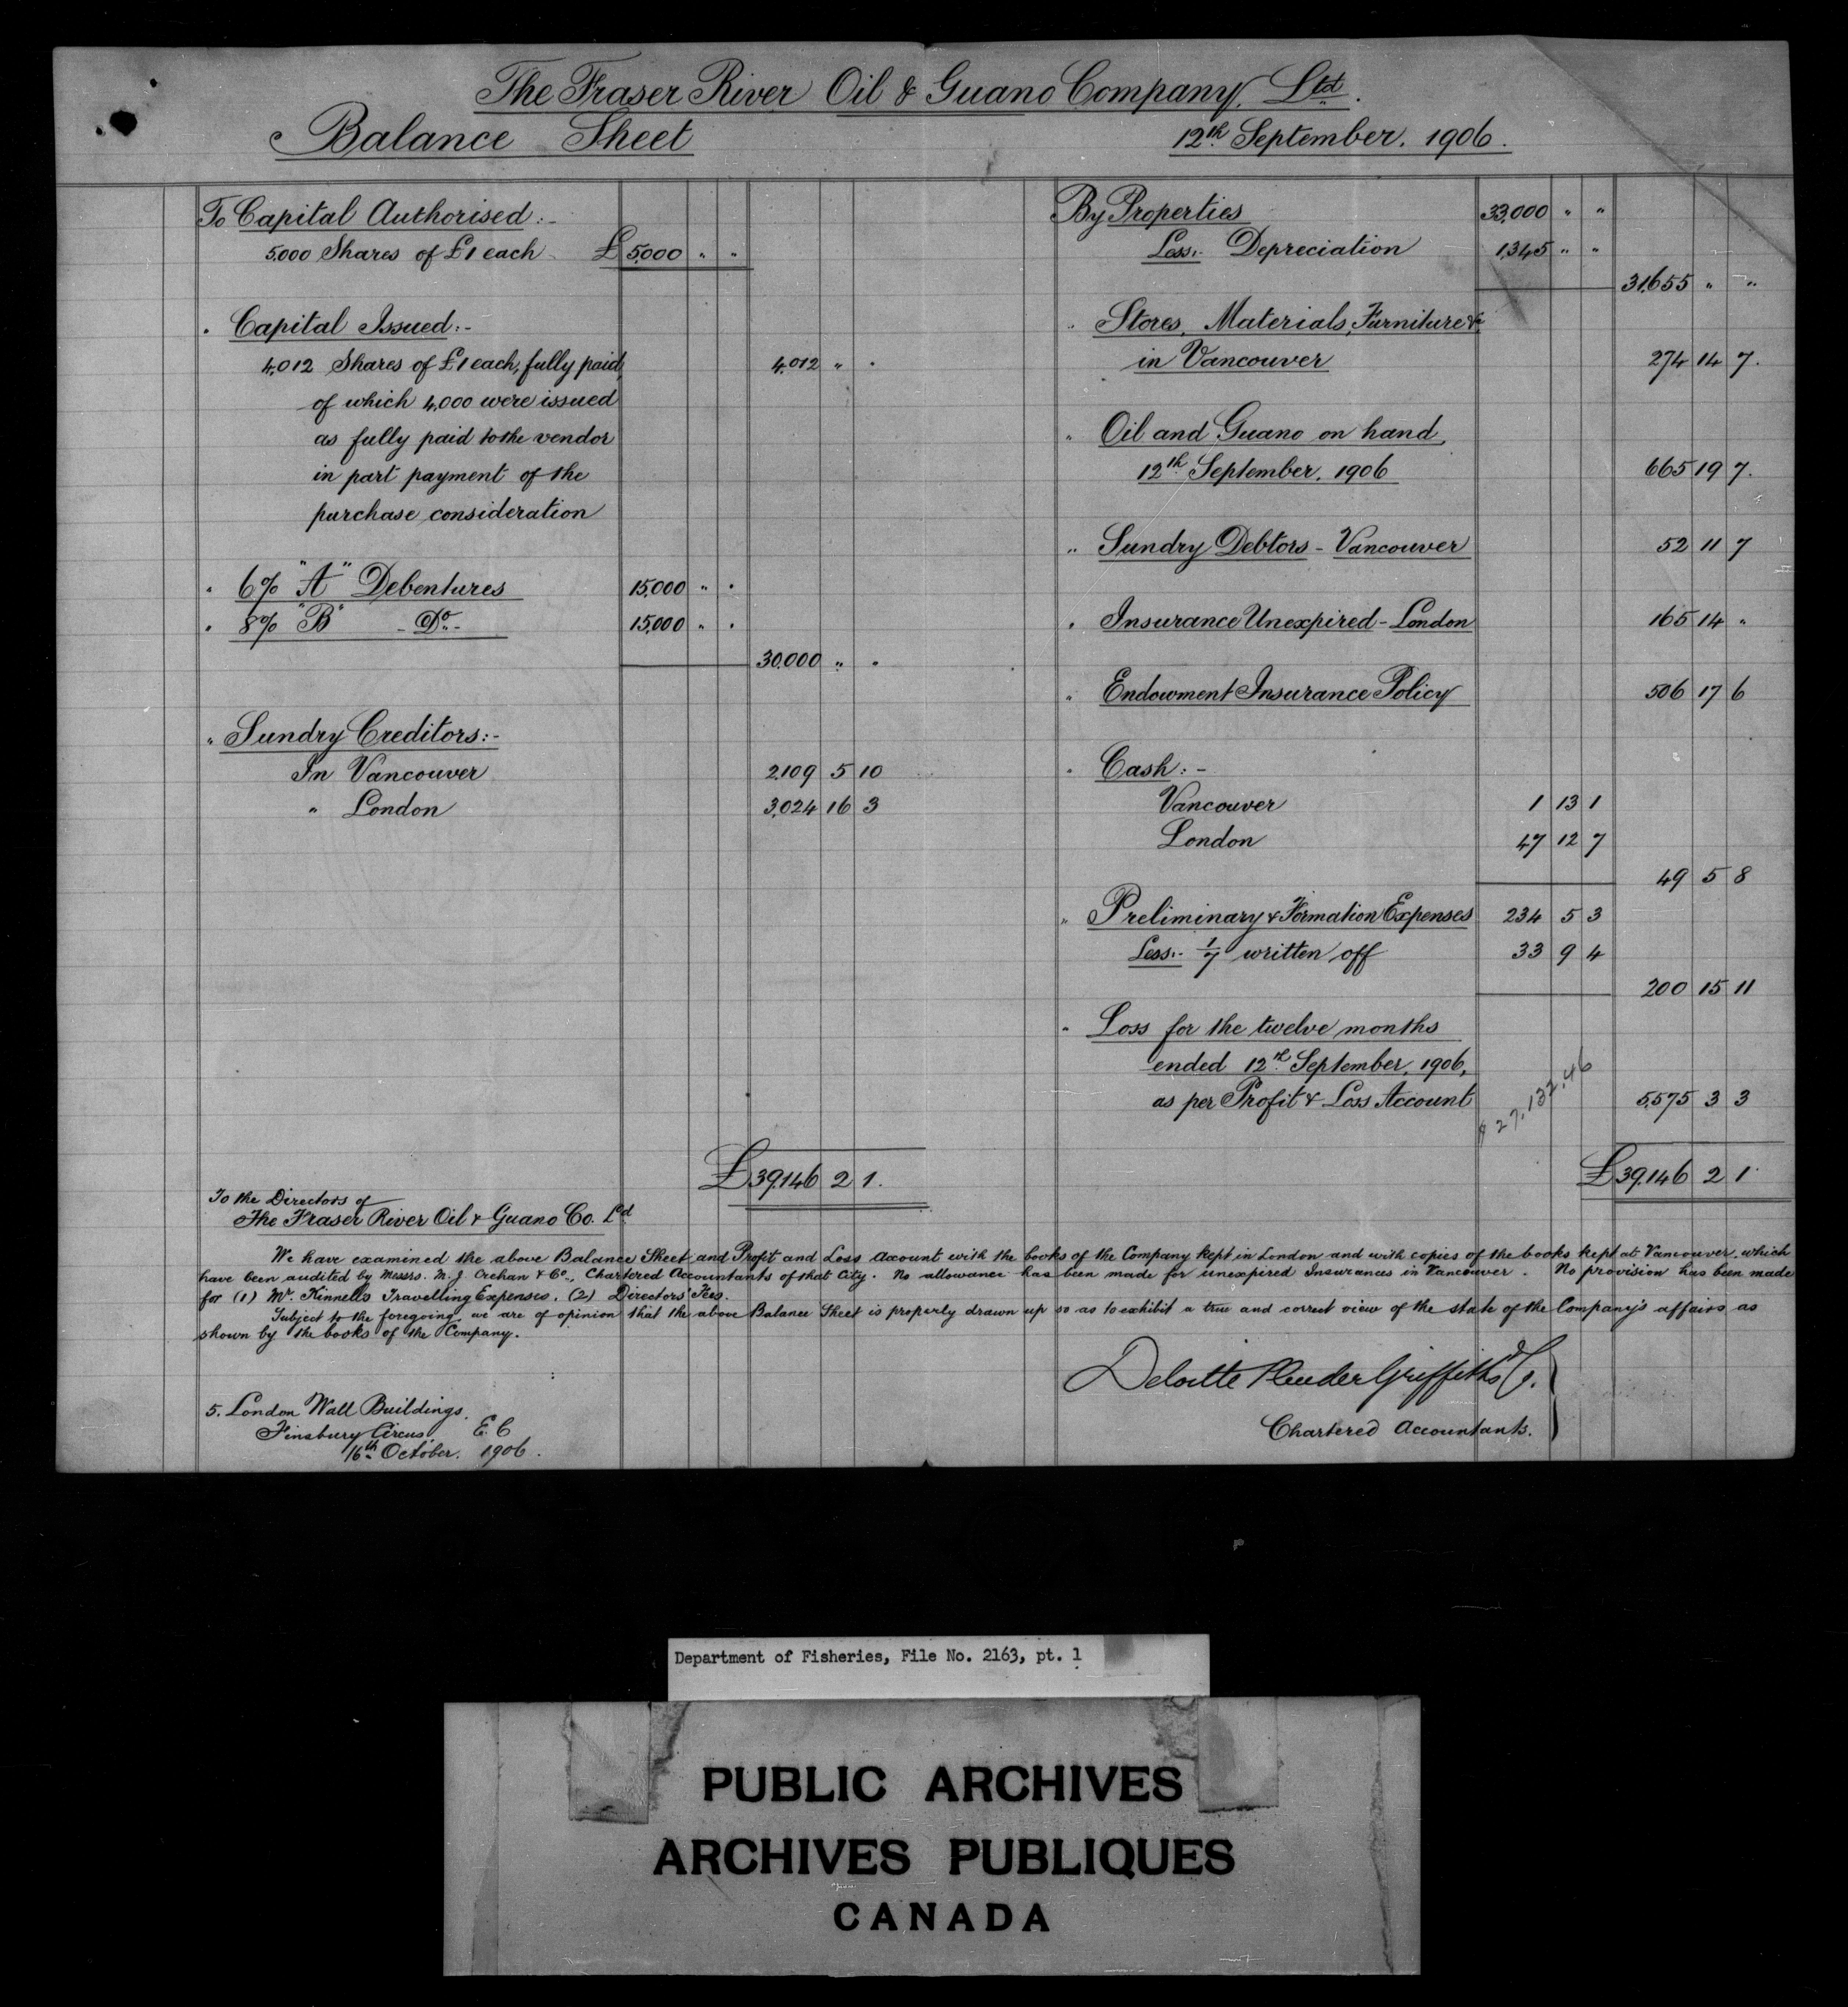 The Fraser River Oil & Guano Company, Ltd.
Balance Sheet
12th September. 1906.
To Capital Authorised:-
5,000 Shares of £1 each £ 5,000 " "
" Capital Issued:-
4,012 Shares of £1 each, fully paid, 4,012 " "
of which 4,000 were issued
as fully paid to the vendor
in part payment of the
purchase consideration
" 6% "A" Debentures 15,000 " "
" 8% "B" -Do- 15,000 " "
30,000 " "
" Sundry Creditors:-
In Vancouver 2,109 5 10
" London 3,024 16 3
£ 39,146 2 1.
By Properties 33,000 " "
Less:- Depreciation 1,345 " "
31,655 " "
" Stores, Materials, Furniture &c
in Vancouver 274 14 7.
" Oil and Guano on hand,
12th September, 1906 665 19 7.
" Sundry Debtors - Vancouver 52 11 7
" Insurance Unexpired - London 165 14 "
" Endowment Insurance Policy 506 17 6
" Cash:-
Vancouver 1 13 1
London 47 12 7
49 5 8
" Preliminary & Formation Expenses 234 5 3
Less:- 1/7 written off 33 9 4
200 15 11
" Loss for the twelve months
ended 12th September, 1906,
as per Profit & Loss Account 5,575 3 3
$ 27,132.46
£ 39,146 2 1
To the Directors of
The Fraser River Oil & Guano Co. Ld
We have examined the above Balance Sheet and Profit and Loss Account with the books of the Company kept in London and with copies of the books kept at Vancouver, which
have been audited by Messrs. M. J. Crehan & Co., Chartered Accountants of that City. No allowance has been made for unexpired Insurances in Vancouver. No provision has been made
for (1) Mr. Kinnell's Travelling Expenses. (2) Directors' Fees.
Subject to the foregoing, we are of opinion that the above Balance Sheet is properly drawn up so as to exhibit a true and correct view of the state of the Company's affairs as
shown by the books of the Company.
Deloitte Plender Griffiths & Co.
Chartered Accountants.
5. London Wall Buildings,
Finsbury Circus, E.C
16th October. 1906.
Department of Fisheries, File No. 2163, pt. 1
PUBLIC ARCHIVES
ARCHIVES PUBLIQUES
CANADA